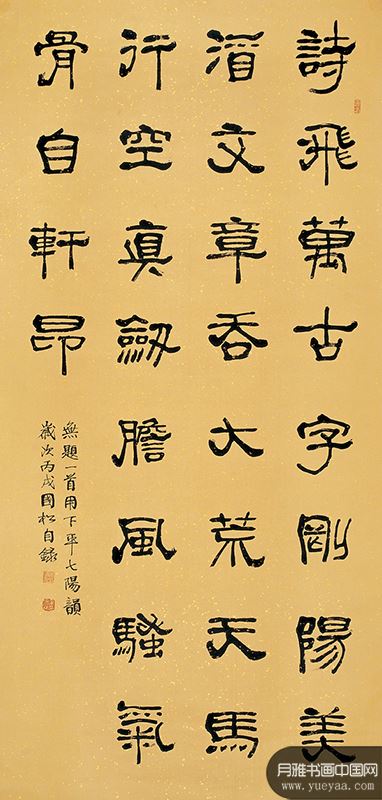 詩飛萬古字剛陽美
酒文章吞大荒天馬
行空眞劒膽風騷氣
骨自軒昂
無題一首用下平七陽韻
歲次丙戌國松自錄
月雅书画中国网
www.yueyaa.com